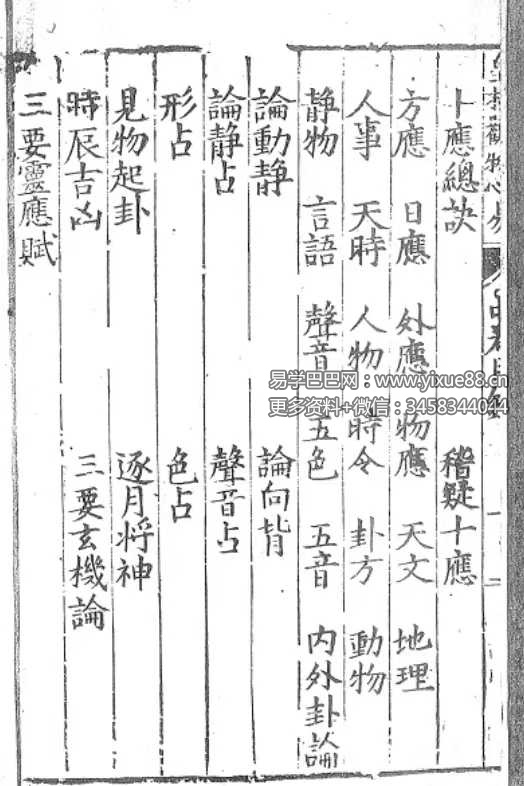 卜應總訣 稽疑十應
方應 日應 外應 物應 天文 地理
人事 天時 人物 時令 卦方 動物
静物 言語 聲音 五色 五音 内外卦論
論動静 論向背
論静占 聲音占
形占 色占
見物起卦 逐月将神
時辰吉凶 三要玄機論
三要靈應賦
易学巴巴网：www.yixue88.cn
更多资料+微信：3458344044